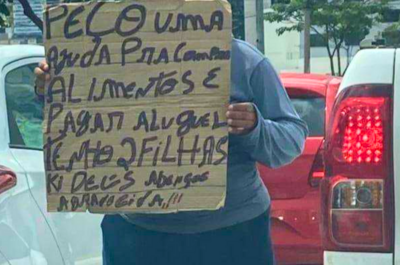 PEÇO UMA
AJUDA PRA COMPRAR
ALIMENTOS E
PAGAR ALUGUEL
TENHO 2 FILHAS
KI DEUS ABENÇOE
ABRADECIDA,,!!